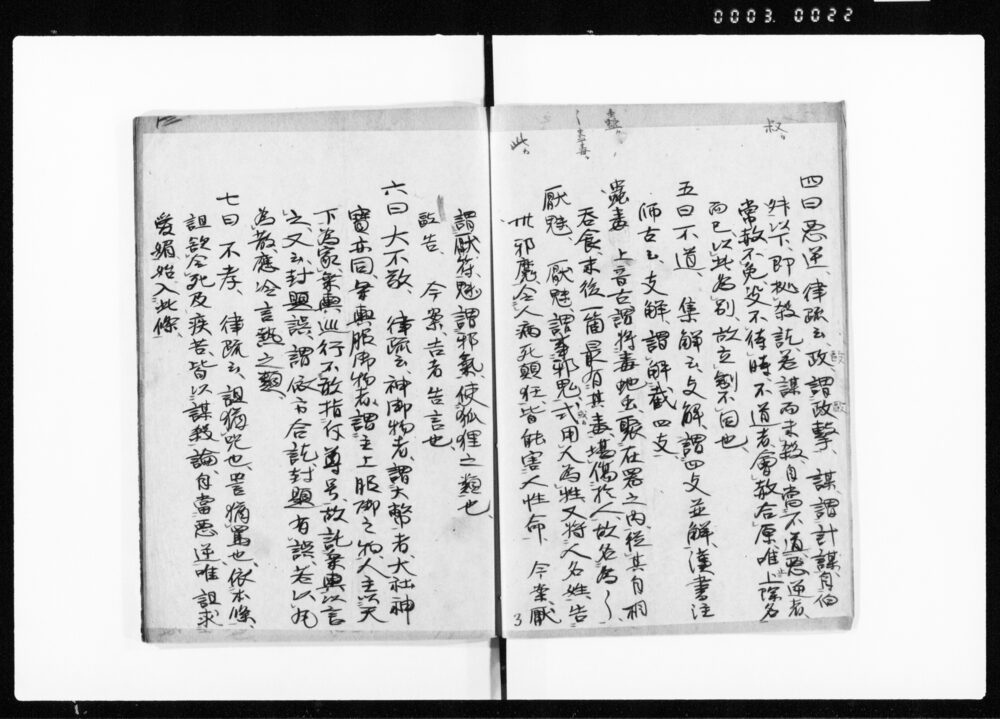 0003.0022
叔
蠱
此
四曰惡逆、律疏云、敺謂敺擊、謀謂計謀、自伯
外以下、即挑殺訖若謀而未殺、自當不道、惡逆者、
常赦不免、決不待時、不道者會赦合原、唯止除名
而已、以此為別、故立制不同也、
五曰不道、集解云、支解謂四支並解、漢書注
師古云、支解謂解截四支、
蠱毒 上音古謂将毒虵虫聚在器之内、從其自相
吞食末後一箇最有其毒堪傷於人故名為〳
厭魅、厭魅謂事邪鬼、或用人為牲又将人名姓、告
邪魔令人病死顛狂皆能害人性命 今案厭
3
謂厭符、魅謂邪氣使狐狸之類也、
誥告、今案、告者告言也、
六曰大不敬、律疏云、神御物者、謂大幣者、大社神
寶亦同、乗輿服御物者、謂主上服御之物、人主以天
下為家、乗輿巡行、不敢指斥尊号、故託乗輿以言
之、又云、封題誤、謂依方合訖封題有誤、若以丸
為散、應冷言熱之類、
七曰不孝、律疏云、詛猶咒也、詈猶罵也、依本條、
詛欲令死及疾苦、皆以謀殺論、自當惡逆、唯詛求
愛媚、始入此條、